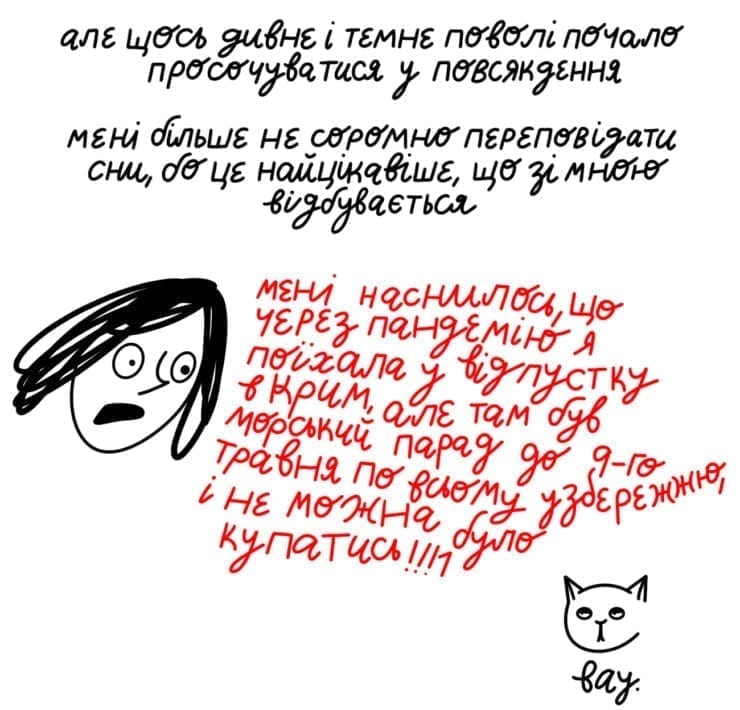 але щось дивне і темне поволі почало
просочуватися у повсякдення
мені більше не соромно переповідати
сни, бо це найцікавіше, що зі мною
відбувається
мені наснилось, що
через пандемію я
поїхала у відпустку
в Крим, але там був
морський парад до 9-го
травня по всьому узбережжю,
і не можна було
купатись!!!!1
вау.